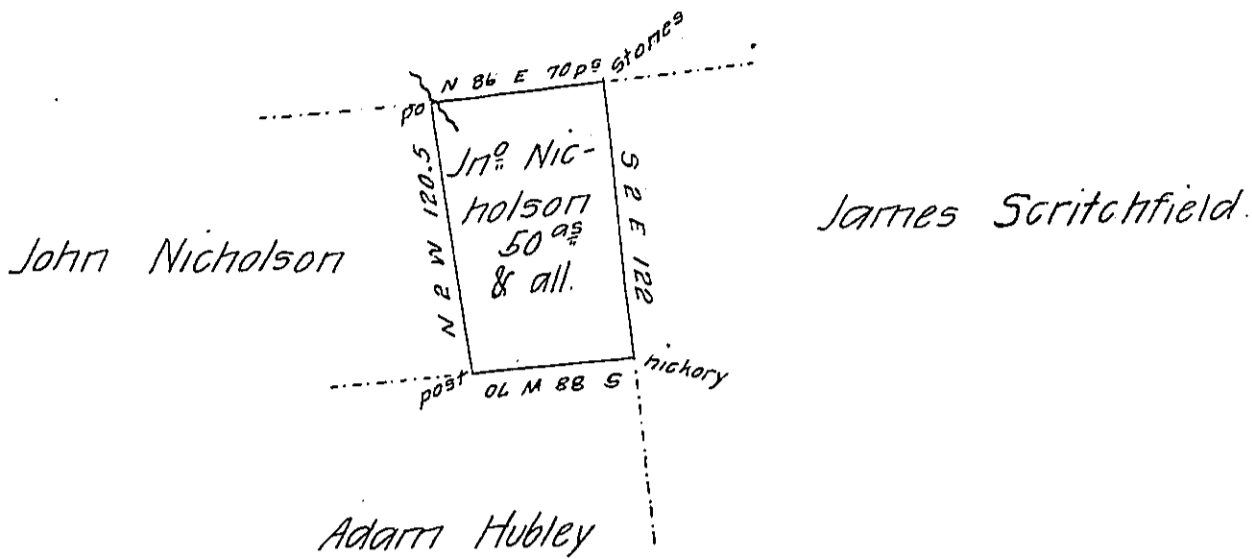 N 86 E 70 ps stones
po
Jno Nic-
holson
50 as
& all.
N 2 W 120.5
S 2 E 122
John Nicholson
James Scritchfield.
post
S 88 W 70
hickory
Adam Hubley